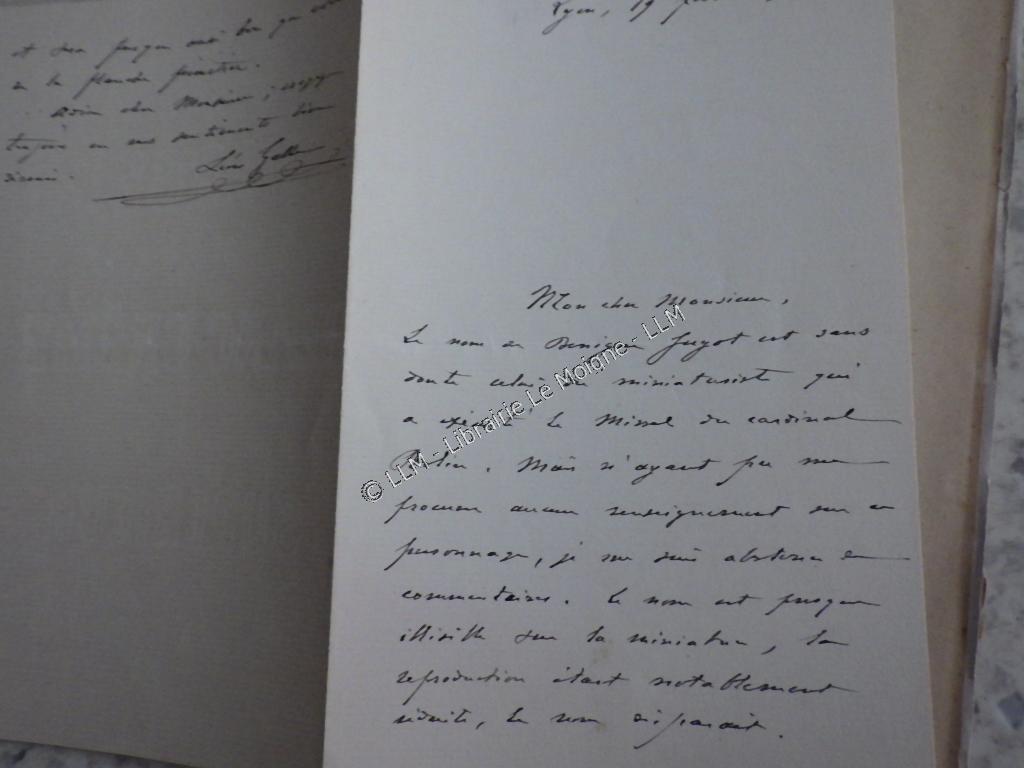 et sera presque aussi bon que
à la planche
adieu cher Monsieur, croyez
toujours en mes sentiments bien
Lyon, 19
Mon cher Monsieur,
Le nom de Benigne Guyot est sans
doute celui du miniaturiste qui
a exécuté le Missel du cardinal
Rolin. Mais n'ayant pu me
procurer aucun renseignement sur ce
personnage, je me suis abstenu de
commentaires. Le nom est presque
illisible sur la miniature, la
reproduction étant notablement
réduite, le nom disparait.
© LLM - Librairie Le Moigne - LLM